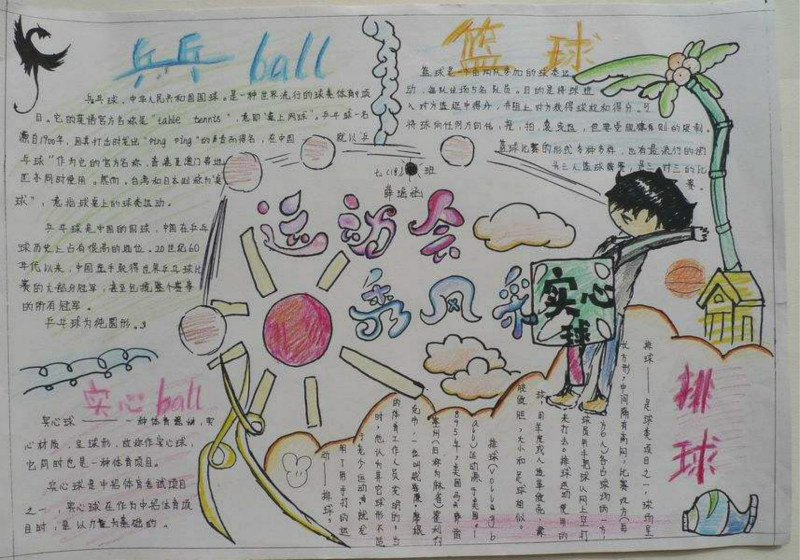 乒乓 ball
乒乓球,中华人民共和国国球。是一种世界流行的球类体育项
目。它的英语官方名称是"table tennis",意即"桌上网球"。乒乓球一名
源自1900年,因其打击时发出"ping pong"的声音而得名,在中国 就以"乒
乓球"作为它的官方名称,香港及澳门等地
区亦同时使用。然而,台湾和日本则称为"桌
球",意指球桌上的球类运动。
乒乓球是中国的国球,中国在乒乓
球历史上占有很高的地位。20世纪60
年代以来,中国选手取得世界乒乓球比
赛的大部分冠军,甚至包揽整个赛事
的所有冠军。
乒乓球为纯圆形。
篮球
篮球是一个由两队参加的球类运
动,每队出场5名队员。目的是将球投
入对方篮框中得分,并阻止对方获得球权和得分。可
将球向任何方向传、投、拍、
篮球比赛的形式多种多样,也有最流行的街
头三人篮球赛,是三对三的比
赛。
七(18)班
运动会
秀风彩
实心
球
实心ball
实心球——一种体育器械,实
心材质,呈球形,故称作实心球,
它同时也是一种体育项目。
实心球是中招体育考试项目
之一,实心球在作为中招体育项
目时,是以力量为基础的。
排球
排球——是球类项目之一,球场呈
长方形,中间隔有高网,比赛双方(每
方6人)各占球场的一方,
球员用手把球从网上空打
来打去。排球运动使用的
球,用羊皮或人造革做壳,橡
胶做胆,大小和足球相似。
排球(Volleyb
all)运动源于美国。1
895年,美国马萨诸
塞州(旧称为麻省)霍利约
克市,一位叫威廉·摩根
的体育工作人员发明的。当
时,他认为其它球形不适